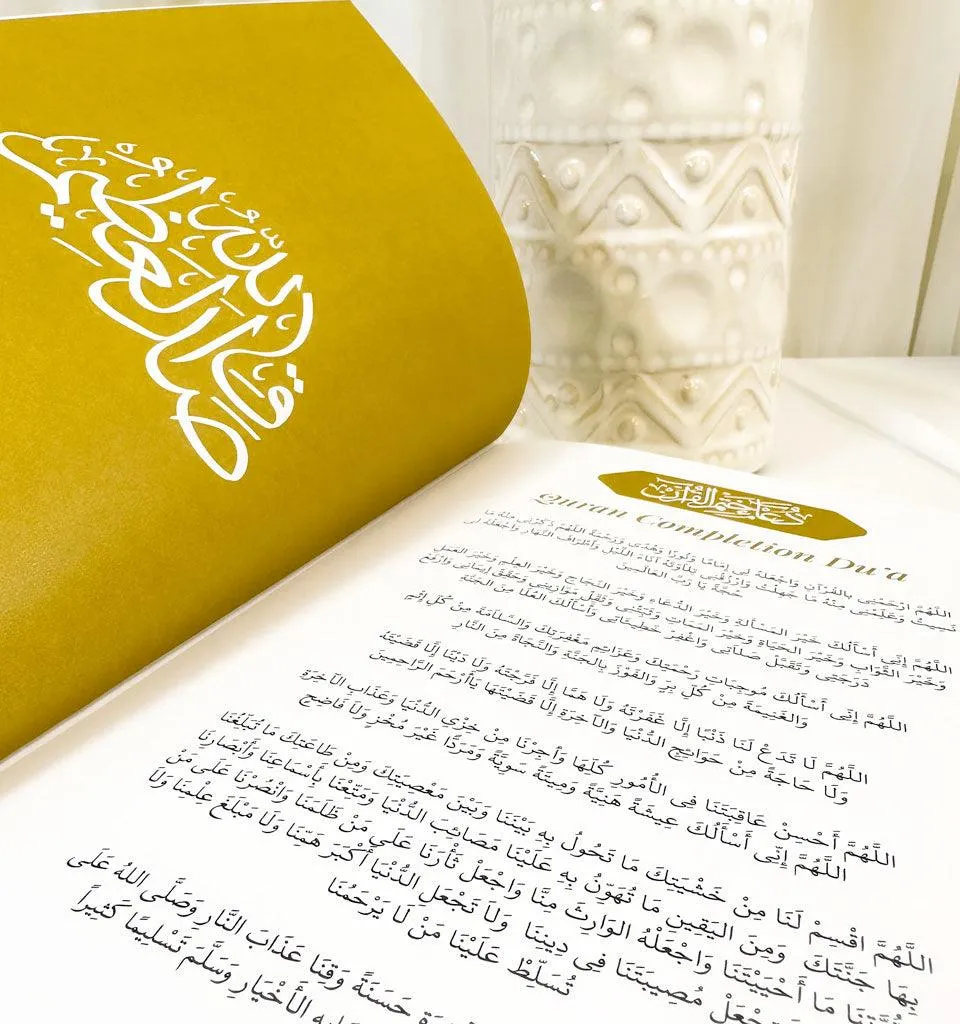 صدق الله العظيم
دعاء ختم القرآن
Quran Completion Du'a
اللَّهُمَّ ارْحَمْنِي بالقُرْآنِ وَاجْعَلهُ لِي إِمَامًا وَنُورًا وَهُدًى وَرَحْمَةً اللَّهُمَّ ذَكِّرْنِي مِنْهُ مَا
نَسِيتُ وَعَلِّمْنِي مِنْهُ مَا جَهِلْتُ وَارْزُقْنِي تِلَاوَتَهُ آنَاءَ اللَّيْلِ وَأَطْرَافَ النَّهَارِ وَاجْعَلْهُ لِي
حُجَّةً يَا رَبَّ العَالَمِينَ
اللَّهُمَّ إِنِّي أَسْأَلُكَ خَيْرَ المَسْأَلَةِ وَخَيْرَ الدُّعَاءِ وَخَيْرَ النَّجَاحِ وَخَيْرَ العِلْمِ وَخَيْرَ العَمَلِ
وَخَيْرَ الثَّوَابِ وَخَيْرَ الحَيَاةِ وَخَيْرَ المَمَاتِ وَثَبِّتْنِي وَثَقِّلْ مَوَازِينِي وَحَقِّقْ إِيمَانِي وَارْفَعْ
دَرَجَتِي وَتَقَبَّلْ صَلَاتِي وَاغْفِرْ خَطِيئَاتِي وَأَسْأَلُكَ العُلَا مِنَ الجَنَّةِ
اللَّهُمَّ إِنِّي أَسْأَلُكَ مُوجِبَاتِ رَحْمَتِكَ وَعَزَائِمِ مَغْفِرَتِكَ وَالسَّلَامَةَ مِنْ كُلِّ إِثْمٍ
وَالغَنِيمَةَ مِنْ كُلِّ بِرٍّ وَالفَوْزَ بِالجَنَّةِ وَالنَّجَاةَ مِنَ النَّارِ
اللَّهُمَّ لَا تَدَعْ لَنَا ذَنْبًا إِلَّا غَفَرْتَهُ وَلَا هَمًّا إِلَّا فَرَّجْتَهُ وَلَا دَيْنًا إِلَّا قَضَيْتَهُ
وَلَا حَاجَةً مِنْ حَوَائِجِ الدُّنْيَا وَالآخِرَةِ إِلَّا قَضَيْتَهَا يَاأَرْحَمَ الرَّاحِمِينَ
اللَّهُمَّ أَحْسِنْ عَاقِبَتَنَا فِي الأُمُورِ كُلِّهَا وَأَجِرْنَا مِنْ خِزْيِ الدُّنْيَا وَعَذَابِ الآخِرَةِ
اللَّهُمَّ إِنِّي أَسْأَلُكَ عِيشَةً هَنِيَّةً وَمِيتَةً سَوِيَّةً وَمَرَدًّا غَيْرَ مُخْزٍ وَلَا فَاضِحٍ
اللَّهُمَّ اقْسِمْ لَنَا مِنْ خَشْيَتِكَ مَا تَحُولُ بِهِ بَيْنَنَا وَبَيْنَ مَعْصِيَتِكَ وَمِنْ طَاعَتِكَ مَا تُبَلِّغُنَا
بِهَا جَنَّتَكَ وَمِنَ اليَقِينِ مَا تُهَوِّنُ بِهِ عَلَيْنَا مَصَائِبَ الدُّنْيَا وَمَتِّعْنَا بِأَسْمَاعِنَا وَأَبْصَارِنَا
مَا أَحْيَيْتَنَا وَاجْعَلْهُ الوَارِثَ مِنَّا وَاجْعَلْ ثَأْرَنَا عَلَى مَنْ ظَلَمَنَا وَانْصُرْنَا عَلَى مَنْ
مُصِيبَتَنَا فِي دِينِنَا وَلَا تَجْعَلِ الدُّنْيَا أَكْبَرَ هَمِّنَا وَلَا مَبْلَغَ عِلْمِنَا وَلَا
تُسَلِّطْ عَلَيْنَا مَنْ لَا يَرْحَمُنَا
حَسَنَةً وَقِنَا عَذَابَ النَّارِ وَصَلَّى اللهُ عَلَى
الأَخْيَارِ وَسَلَّمَ تَسْلِيمًا كَثِيراً